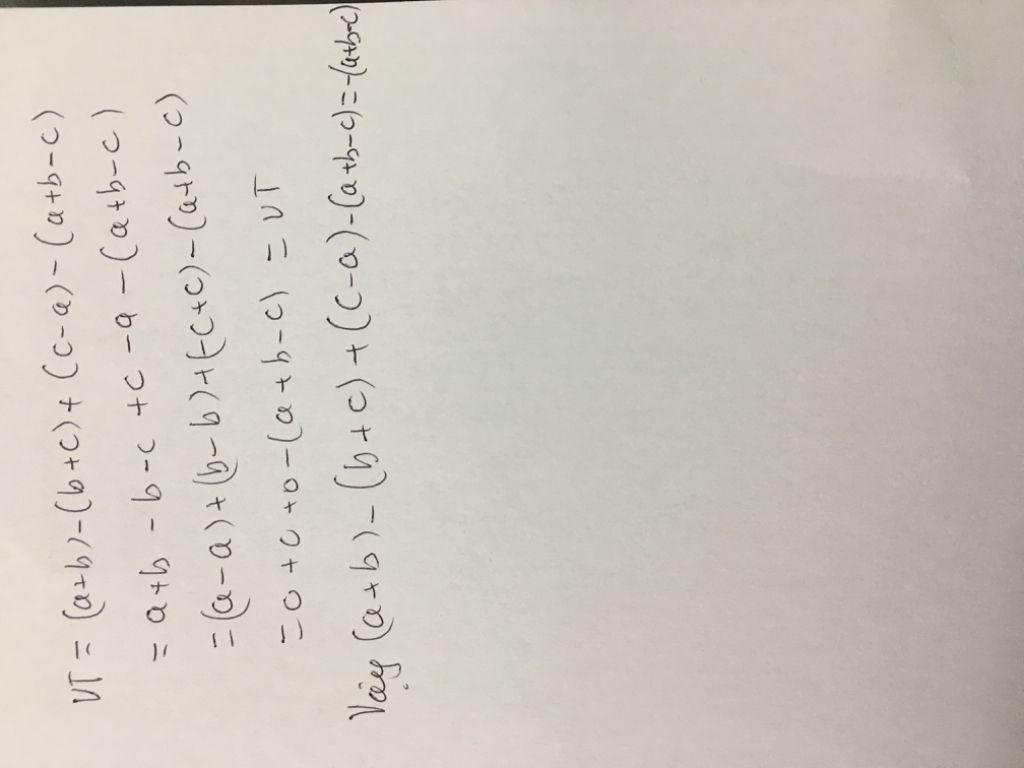 VT = (a+b)-(b+c)+(c-a)-(a+b-c)
= a+b-b-c+c-a-(a+b-c)
=(a-a)+(b-b)+(-c+c)-(a+b-c)
=0+0+0-(a+b-c) = VT
Vậy (a+b)-(b+c)+(c-a)-(a+b-c)=-(a+b-c)